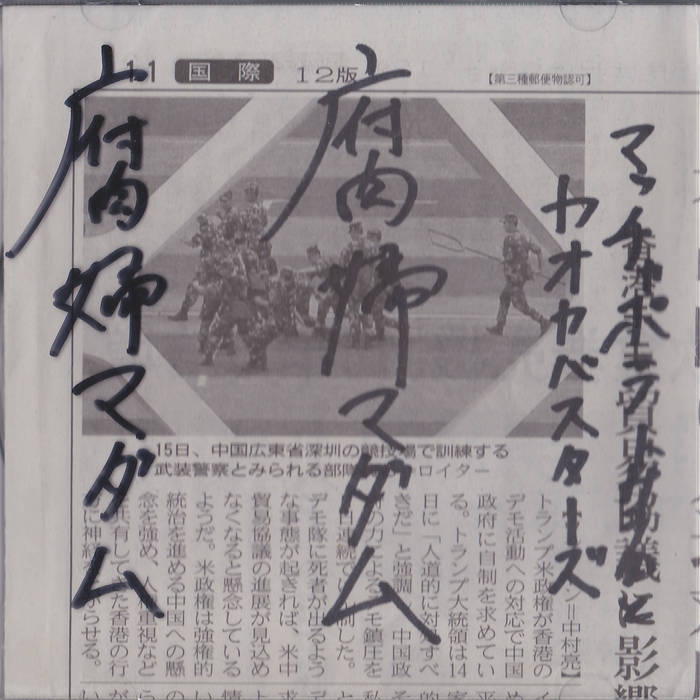 11 国際 12版 【第三種郵便物認可】
カオカバスターズ
腐肉婦マダム
腐肉婦マダム
15日、中国広東省深圳の競技場で訓練する
武装警察とみられる部隊
ロイター
影響
＝中村亮】
トランプ米政権が香港の
デモ活動への対応で中国
政府に自制を求めてい
る。トランプ大統領は14
日に「人道的に対
すべ
きだ」と強調
中国政
の力による
モ鎮圧を
デモ隊に死者が出るよう
な事態が起きれば、米中
貿易協議の進展が見込め
なくなると懸念している
ようだ。米政権は強権的
統治を進める中国への懸
念を強め、人
重視など
共有してきた香港の行
に神経
らせる。